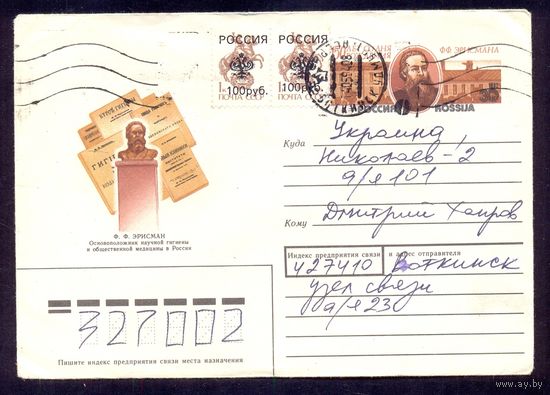 РОССИЯ
РОССИЯ
100руб.
1 100руб.
ПОЧТА СССР
ПОЧТА СССР
Ф.Ф. ЭРИСМАНА
РОССИЯ
ROSSIJA
35
ГИГИ
Ф. Ф. ЭРИСМАН
Основоположник научной гигиены
и общественной медицины в России
Куда
Украина,
Николаев-2
а/я 101
Кому
Дмитрий Хаиров
Индекс предприятия связи
и адрес отправителя
427410
Воткинск
узел связи
а/я 23
327002
Пишите индекс предприятия связи места назначения
ay.by